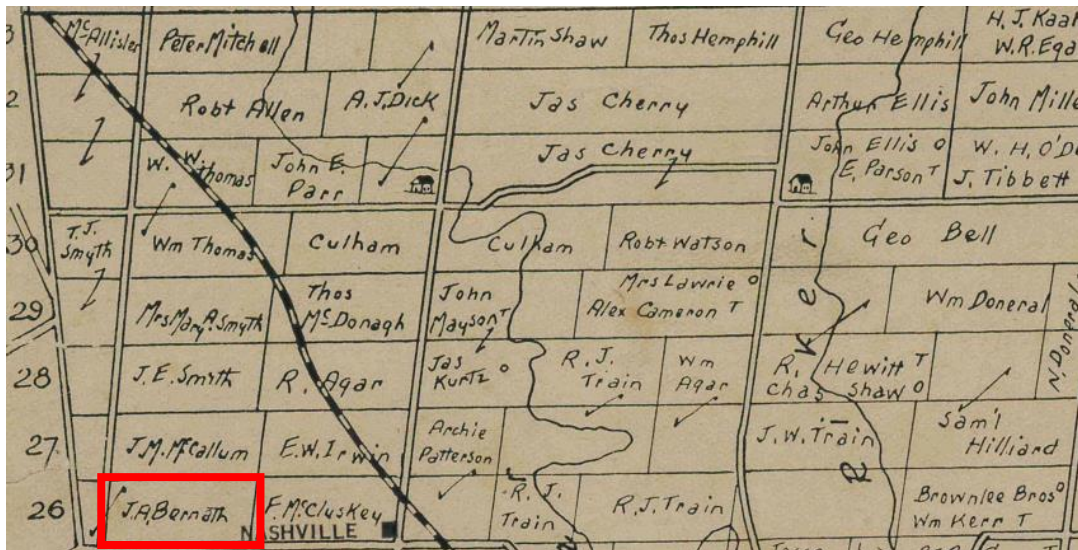 McAllister
Peter Mitchell
Martin Shaw
Thos Hemphill
Geo Hemphill
H. J. Kaa
W. R. Ega
2
Robt Allen
A. J. Dick
Jas Cherry
Arthur Ellis
John Mille
31
W. W. Thomas
John E.
Parr
Jas Cherry
John Ellis O
E. Parson T
W. H. O'D
J. Tibbett
30
T. J.
Smyth
Wm Thomas
Culham
Culham
Robt Watson
Geo Bell
29
Mrs Mary A. Smyth
Thos
McDonagh
John
Mayson T
Mrs Lawrie O
Alex Cameron T
Wm Doneral
N. Doneral
28
J. E. Smith
R. Agar
Jas
Kurtz O
R. J.
Train
Wm
Agar
R. Hewitt T
Chas Shaw O
27
J. M. McCallum
E. W. Irwin
Archie
Patterson
J. W. Train
Sam'l
Hilliard
26
J. A. Bernath
F. McCluskey
NASHVILLE
R. J.
Train
R. J. Train
Brownlee Bros O
Wm Kerr T